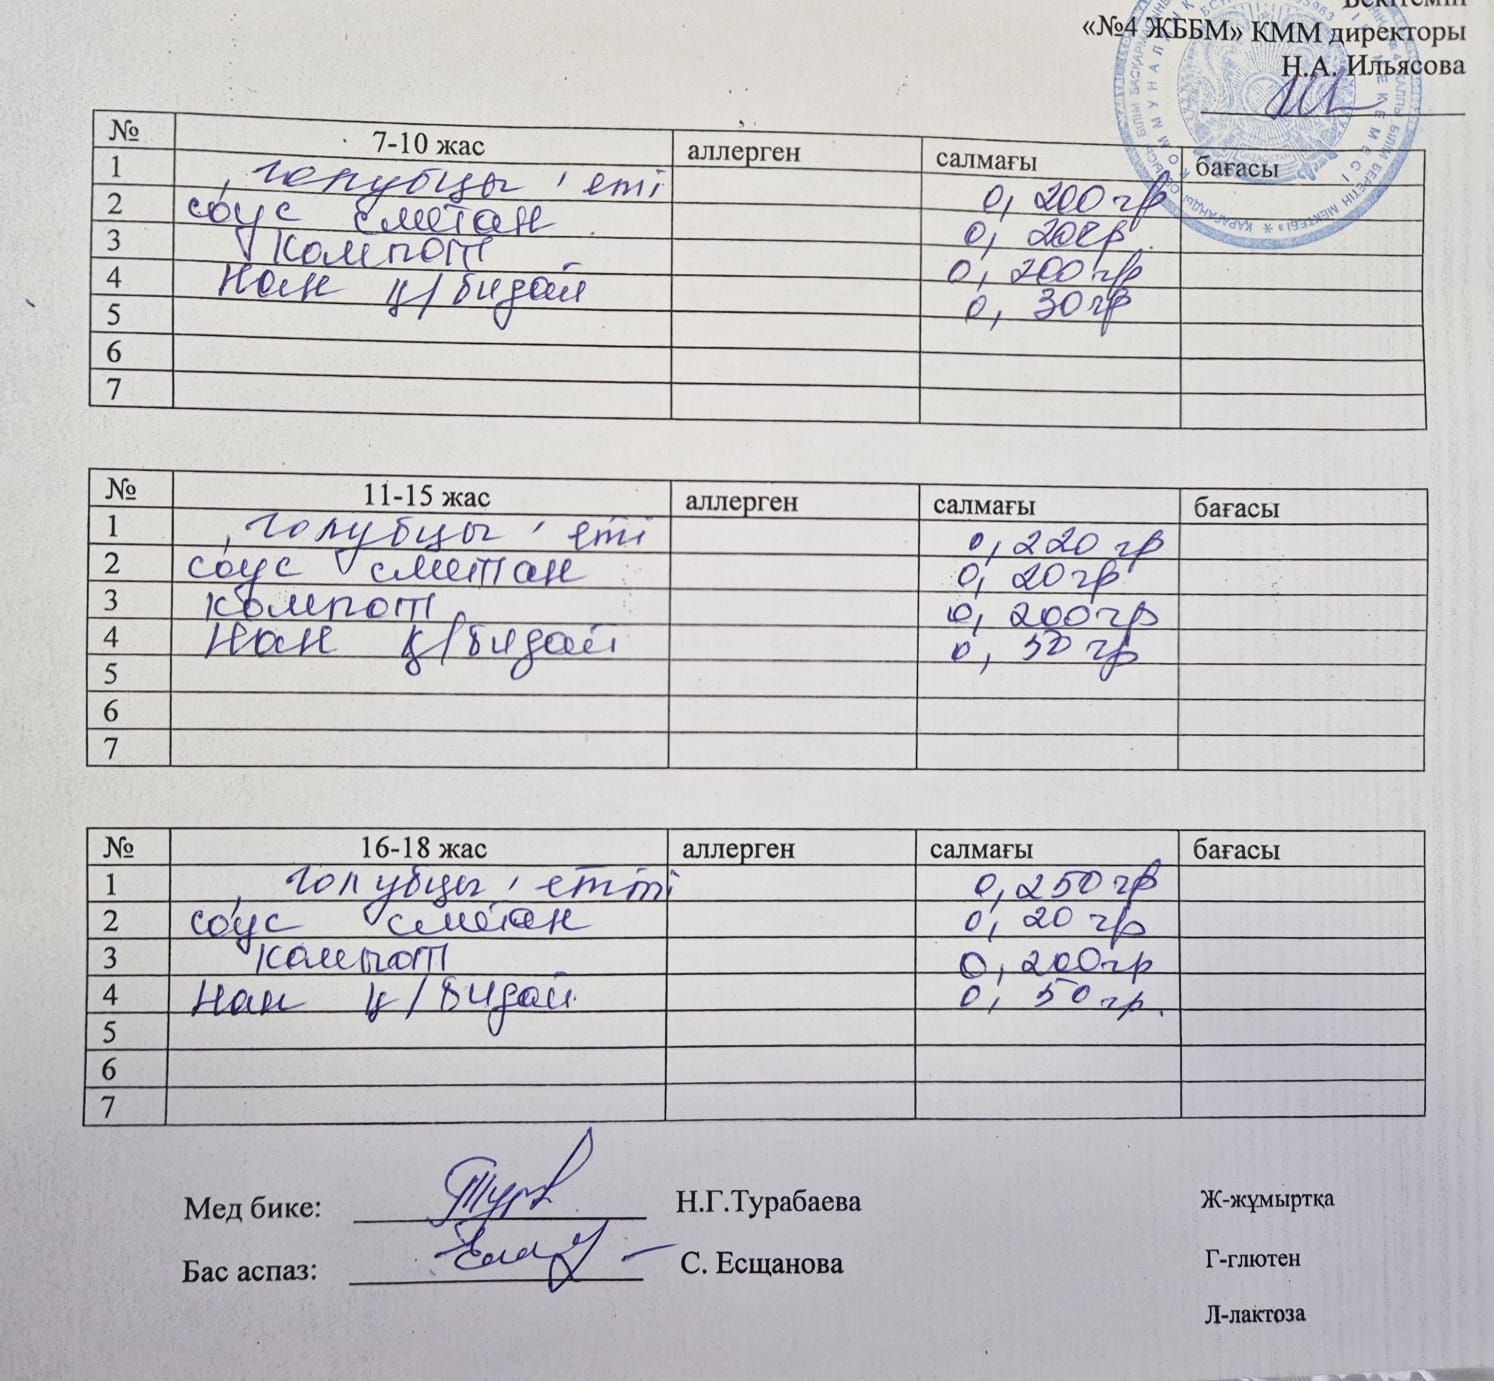 Бекітемін
«№4 ЖББМ» КММ директоры
Н.А. Ильясова
№ 7-10 жас аллерген салмағы бағасы
1 голубцы, еті 0, 200 гр
2 соус сметан 0, 20гр.
3 компот 0, 200 гр
4 Нан қ/бидай 0, 30 гр
5
6
7
№ 11-15 жас аллерген салмағы бағасы
1 голубцы, еті 0, 220 гр
2 соус сметан 0, 20 гр
3 компот 0, 200 гр
4 Нан қ/бидай 0, 50 гр
5
6
7
№ 16-18 жас аллерген салмағы бағасы
1 голубцы, етті 0, 250 гр
2 соус сметан 0, 20 гр
3 компот 0, 200 гр
4 Нан қ/бидай 0, 50 гр.
5
6
7
Мед бике: Н.Г.Турабаева Ж-жұмыртқа
Бас аспаз: С. Есщанова Г-глютен
Л-лактоза